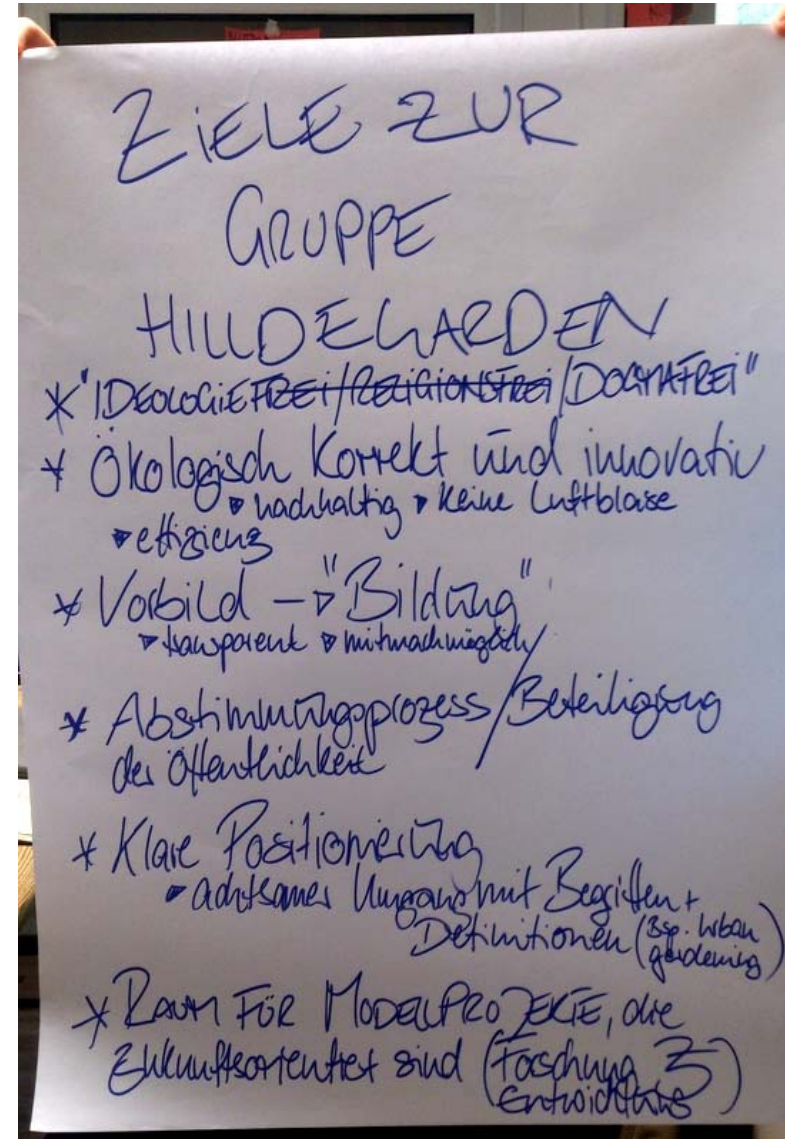 ZIELE ZUR
GRUPPE
HILLDEGARDEN
* "IDEOLOGIEFREI/RELIGIONSFREI/DOGMAFREI"
* Ökologisch Korrekt und innovativ
▸ nachhaltig ▸ Keine Luftblase
▸ effizienz
* Vorbild –▸ "Bildung"
▸ transparent ▸ mitmachmöglich
* Abstimmungsprozess/Beteiligung
der Öffentlichkeit
* Klare Positionierung
▸ achtsamer Umgang mit Begriffen +
Definitionen (Bsp. Urban
gardening)
* RAUM FÜR MODELLPROJEKTE, die
Zukunftsorientiert sind (Forschung &
Entwicklung)